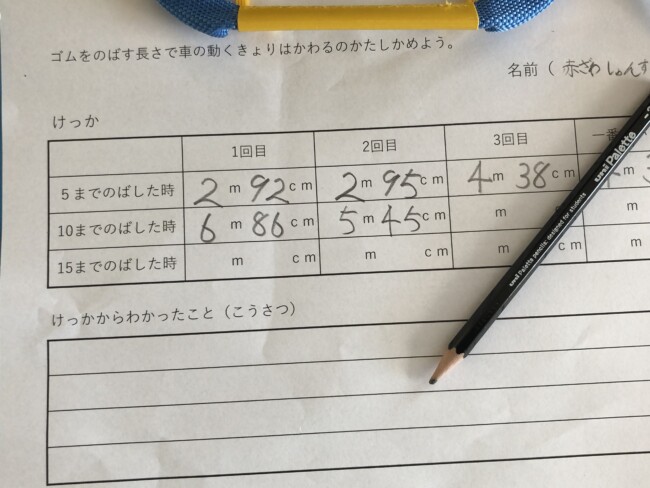 ゴムをのばす長さで車の動くきょりはかわるのかたしかめよう。
名前（ 赤ざわ しゅんす
けっか
1回目 2回目 3回目 一番
5までのばした時 2 m 92 cm 2 m 95 cm 4 m 38 cm
10までのばした時 6 m 86 cm 5 m 45 cm m cm m
15までのばした時 m cm m cm m cm m
けっかからわかったこと（こうさつ）
uni Palette
uni Palette pencils designed for students